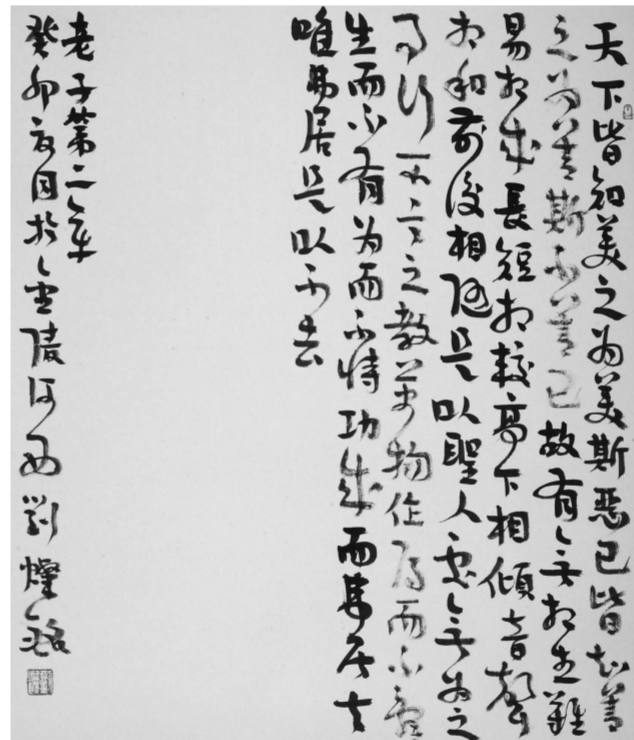 天下皆知美之为美斯惡已皆知善
之为善斯不善已故有無相生難
易相成長短相較高下相傾音聲
相和前後相随是以聖人處無為之
事行不言之教萬物作焉而不辭
生而不有为而不恃功成而弗居夫
唯弗居是以不去
老子第二章
癸卯夏日於金陵河西劉燦銘